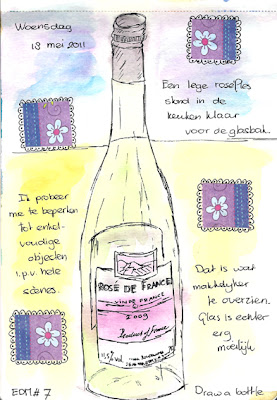 Woensdag
18 mei 2011
Een lege roséfles
stond in de
keuken klaar
voor de glasbak.
Ik probeer
me te beperken
tot enkel-
voudige
objecten
i.p.v. hele
scènes.
ROSÉ DE FRANCE
VIN DE FRANCE
2009
Product of France
11,5% vol
Dat is wat
makkelijker
te overzien.
Glas is echter
erg
moeilijk
EDM # 7
Draw a bottle